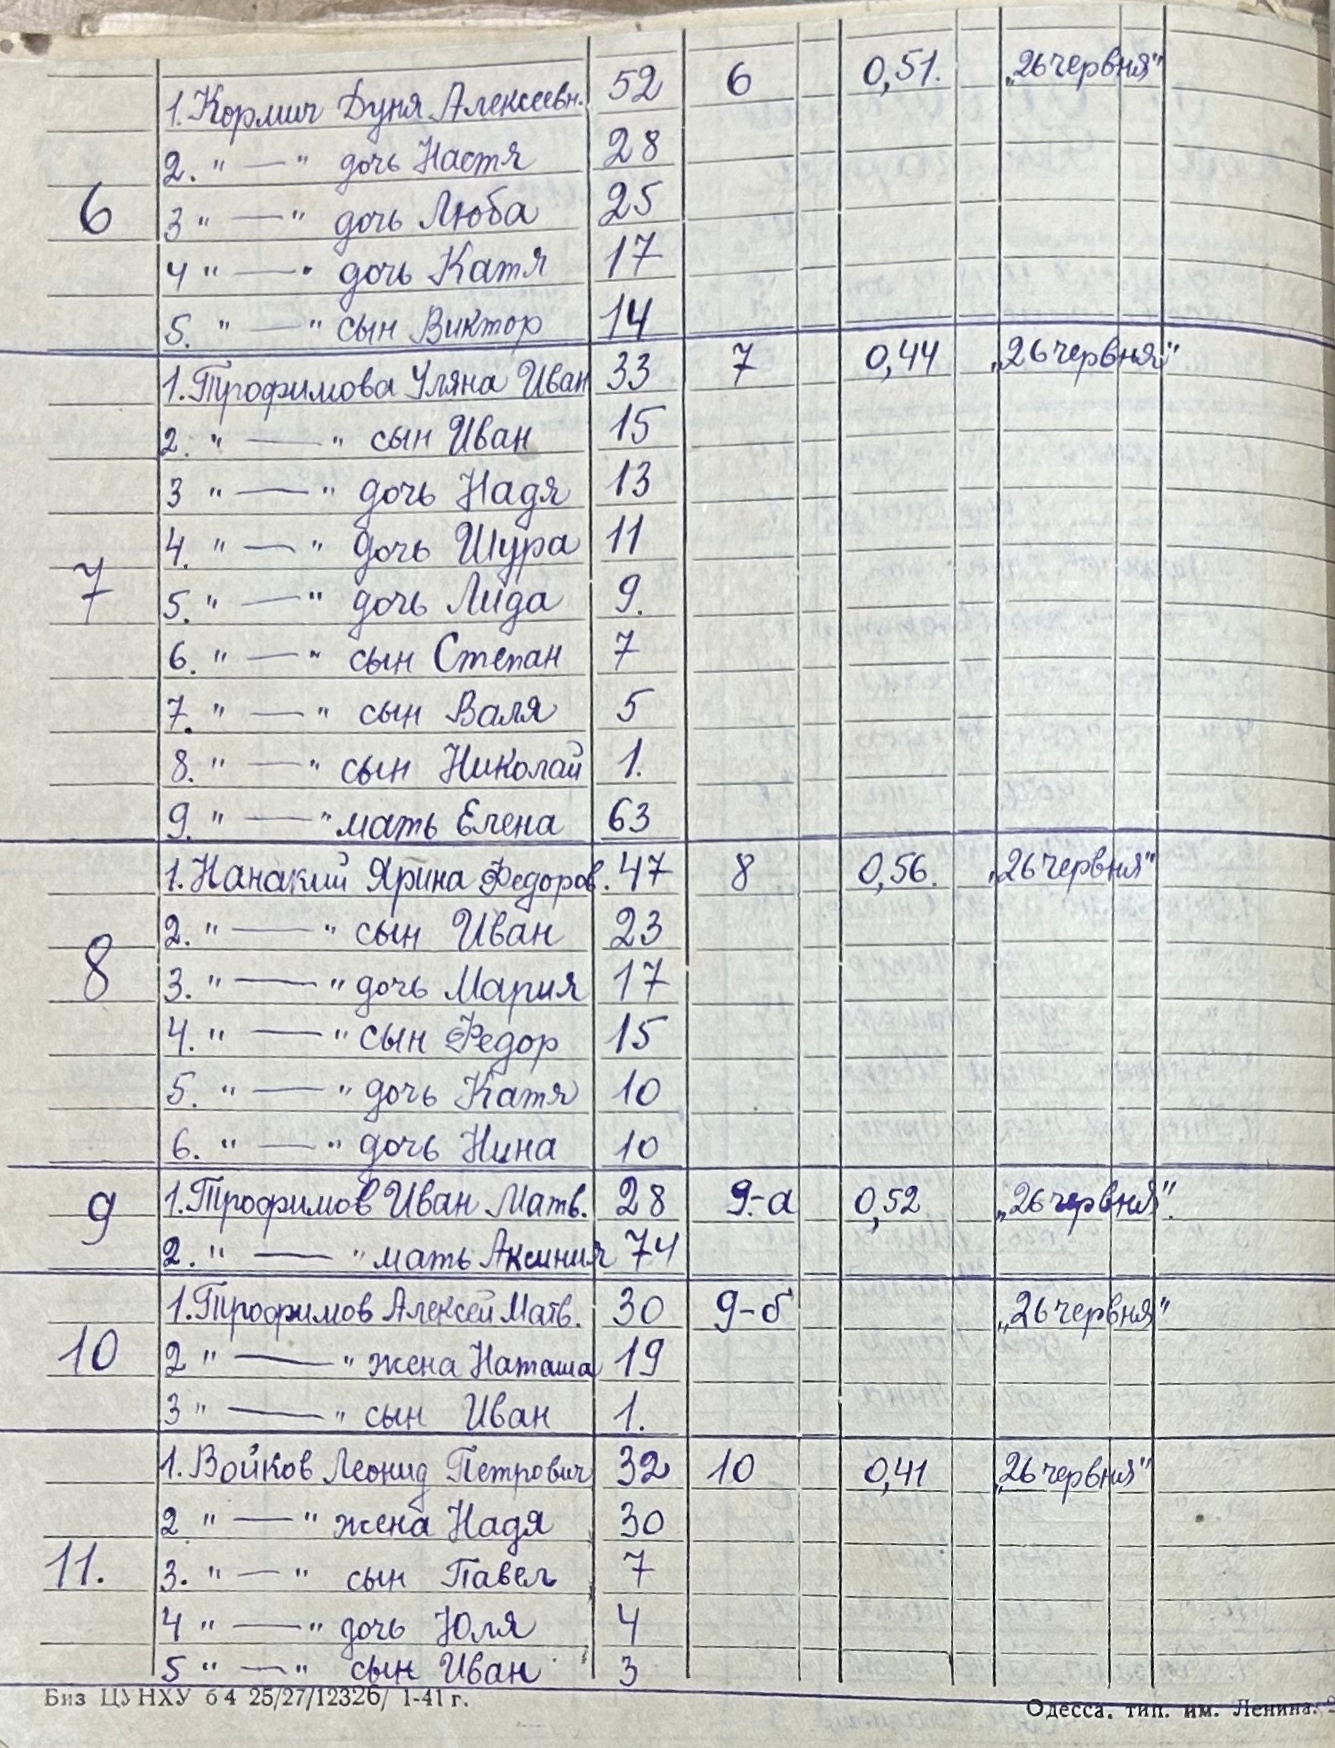 1. Кормич Дуня Алексеевн. 52 6 0,51. „26 червня"
2. " — " дочь Настя 28
6 3 " — " дочь Люба 25
4 " — " дочь Катя 17
5. " — " сын Виктор 14
1. Трофимова Уляна Иван 33 7 0,44 „26 червня"
2. " — " сын Иван 15
3 " — " дочь Надя 13
4. " — " дочь Шура 11
7 5. " — " дочь Лида 9.
6. " — " сын Степан 7
7. " — " сын Валя 5
8. " — " сын Николай 1.
9. " — " мать Елена 63
1. Нанакий Ярина Федоров. 47 8 0,56. „26 червня"
2. " — " сын Иван 23
8 3. " — " дочь Мария 17
4. " — " сын Федор 15
5. " — " дочь Катя 10
6. " — " дочь Нина 10
9 1. Трофимов Иван Матв. 28 9-а 0,52 „26 червня".
2. " — " мать Аксиния 74
1. Трофимов Алексей Матв. 30 9-б „26 червня"
10 2 " — " жена Наташа 19
3 " — " сын Иван 1.
1. Войков Леонид Петрович 32 10 0,41 „26 червня"
2 " — " жена Надя 30
11. 3. " — " сын Павел 7
4 " — " дочь Юля 4
5 " — " сын Иван 3
Биз ЦУНХУ б4 25/27/12326/ 1-41 г. Одесса, тип. им. Ленина.